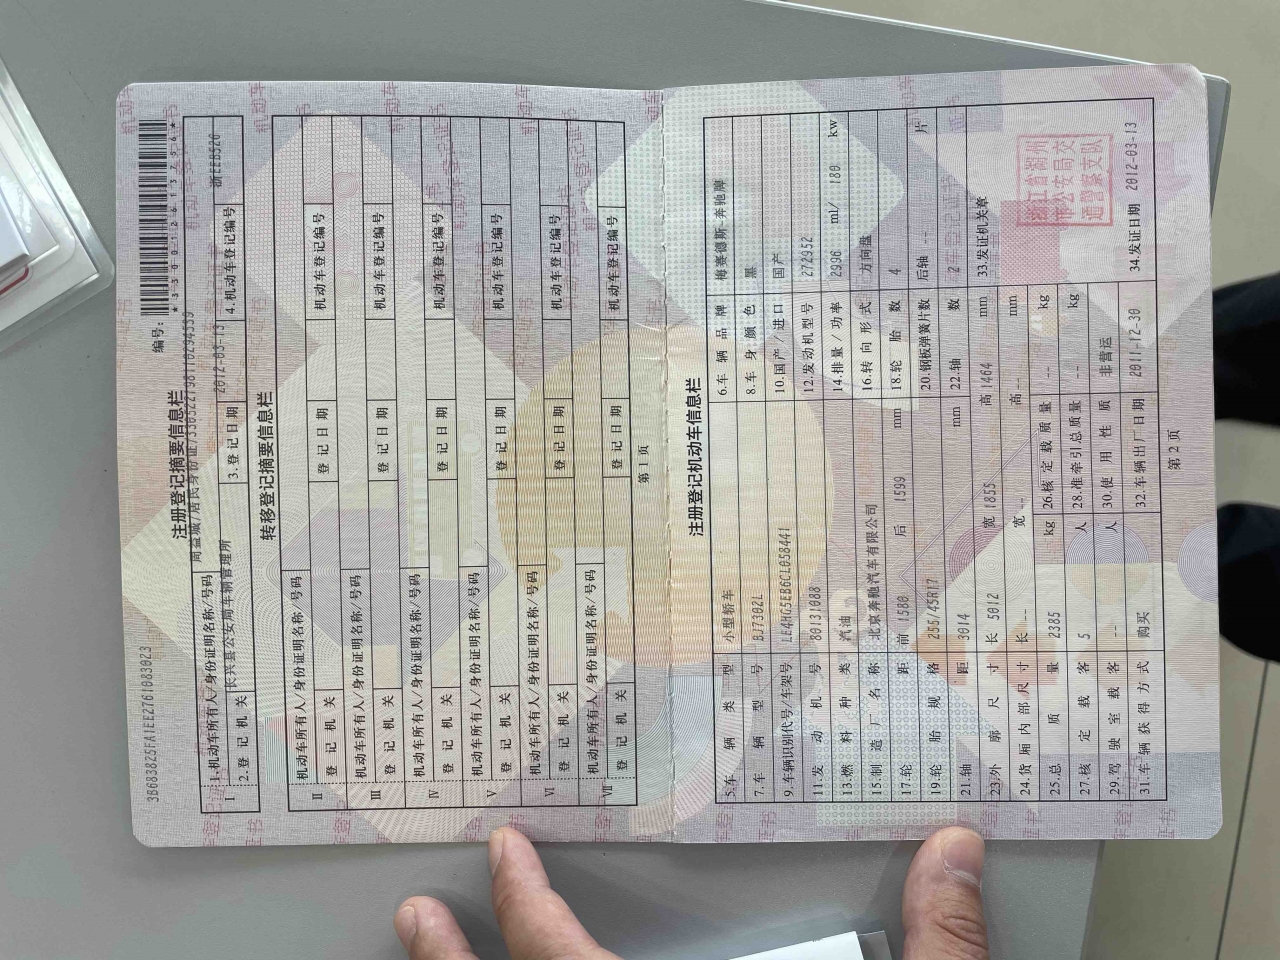 3B683825FA1EE2761D883023
编号:
*330012613756*
注册登记摘要信息栏
I 1.机动车所有人/身份证明名称/号码 周益城/居民身份证/
2.登记机关 长兴县公安局车辆管理所 3.登记日期 2012-03-13 4.机动车登记编号 浙EEB520
转移登记摘要信息栏
II 机动车所有人/身份证明名称/号码
登记机关 登记日期 机动车登记编号
III 机动车所有人/身份证明名称/号码
登记机关 登记日期 机动车登记编号
IV 机动车所有人/身份证明名称/号码
登记机关 登记日期 机动车登记编号
V 机动车所有人/身份证明名称/号码
登记机关 登记日期 机动车登记编号
VI 机动车所有人/身份证明名称/号码
登记机关 登记日期 机动车登记编号
VII 机动车所有人/身份证明名称/号码
登记机关 登记日期 机动车登记编号
第 1 页
注册登记机动车信息栏
5.车辆类型 小型轿车 6.车辆品牌 梅赛德斯-奔驰牌
7.车辆型号 BJ7302L 8.车身颜色 黑
9.车辆识别代号/车架号 LE4HG5EB6CL058441 10.国产/进口 国产
11.发动机号 80131088 12.发动机型号 272952
13.燃料种类 汽油 14.排量/功率 2996 ml/ 180 kw
15.制造厂名称 北京奔驰汽车有限公司 16.转向形式 方向盘
17.轮距 前 1580 后 1599 mm 18.轮胎数 4
19.轮胎规格 245/45R17 20.钢板弹簧片数 后轴 -- 片
21.轴距 3014 mm 22.轴数 2
23.外廓尺寸 长 5012 宽 1855 高 1464 mm 33.发证机关章
24.货厢内部尺寸 长 -- 宽 -- 高 -- mm
浙江省湖州
市公安局交
通警察支队
25.总质量 2385 kg 26.核定载质量 -- kg
27.核定载客 5 人 28.准牵引总质量 -- kg
29.驾驶室载客 -- 人 30.使用性质 非营运
31.车辆获得方式 购买 32.车辆出厂日期 2011-12-30 34.发证日期 2012-03-13
第 2 页